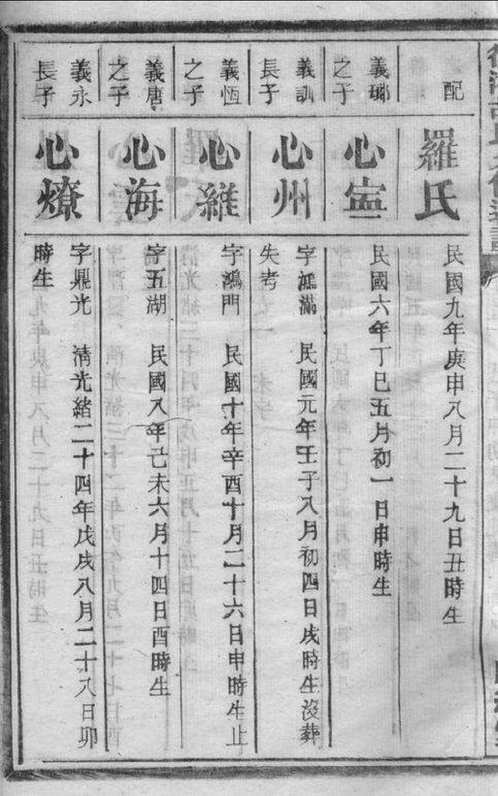 配
羅氏
民國九年庚申八月二十九日丑時生
義瑯
之子
心寍
民國六年丁巳五月初一日申時生
義訓
長子
心州
字滙滿　民國元年壬子八月初四日戌時生沒葬
失考
義恆
之子
心維
字鴻門　民國十年辛酉十月二十六日申時生止
義唐
之子
心海
字五湖　民國八年己未六月十四日酉時生
義永
長子
心燎
字鼎光　清光緒二十四年戊戌八月二十八日卯
時生